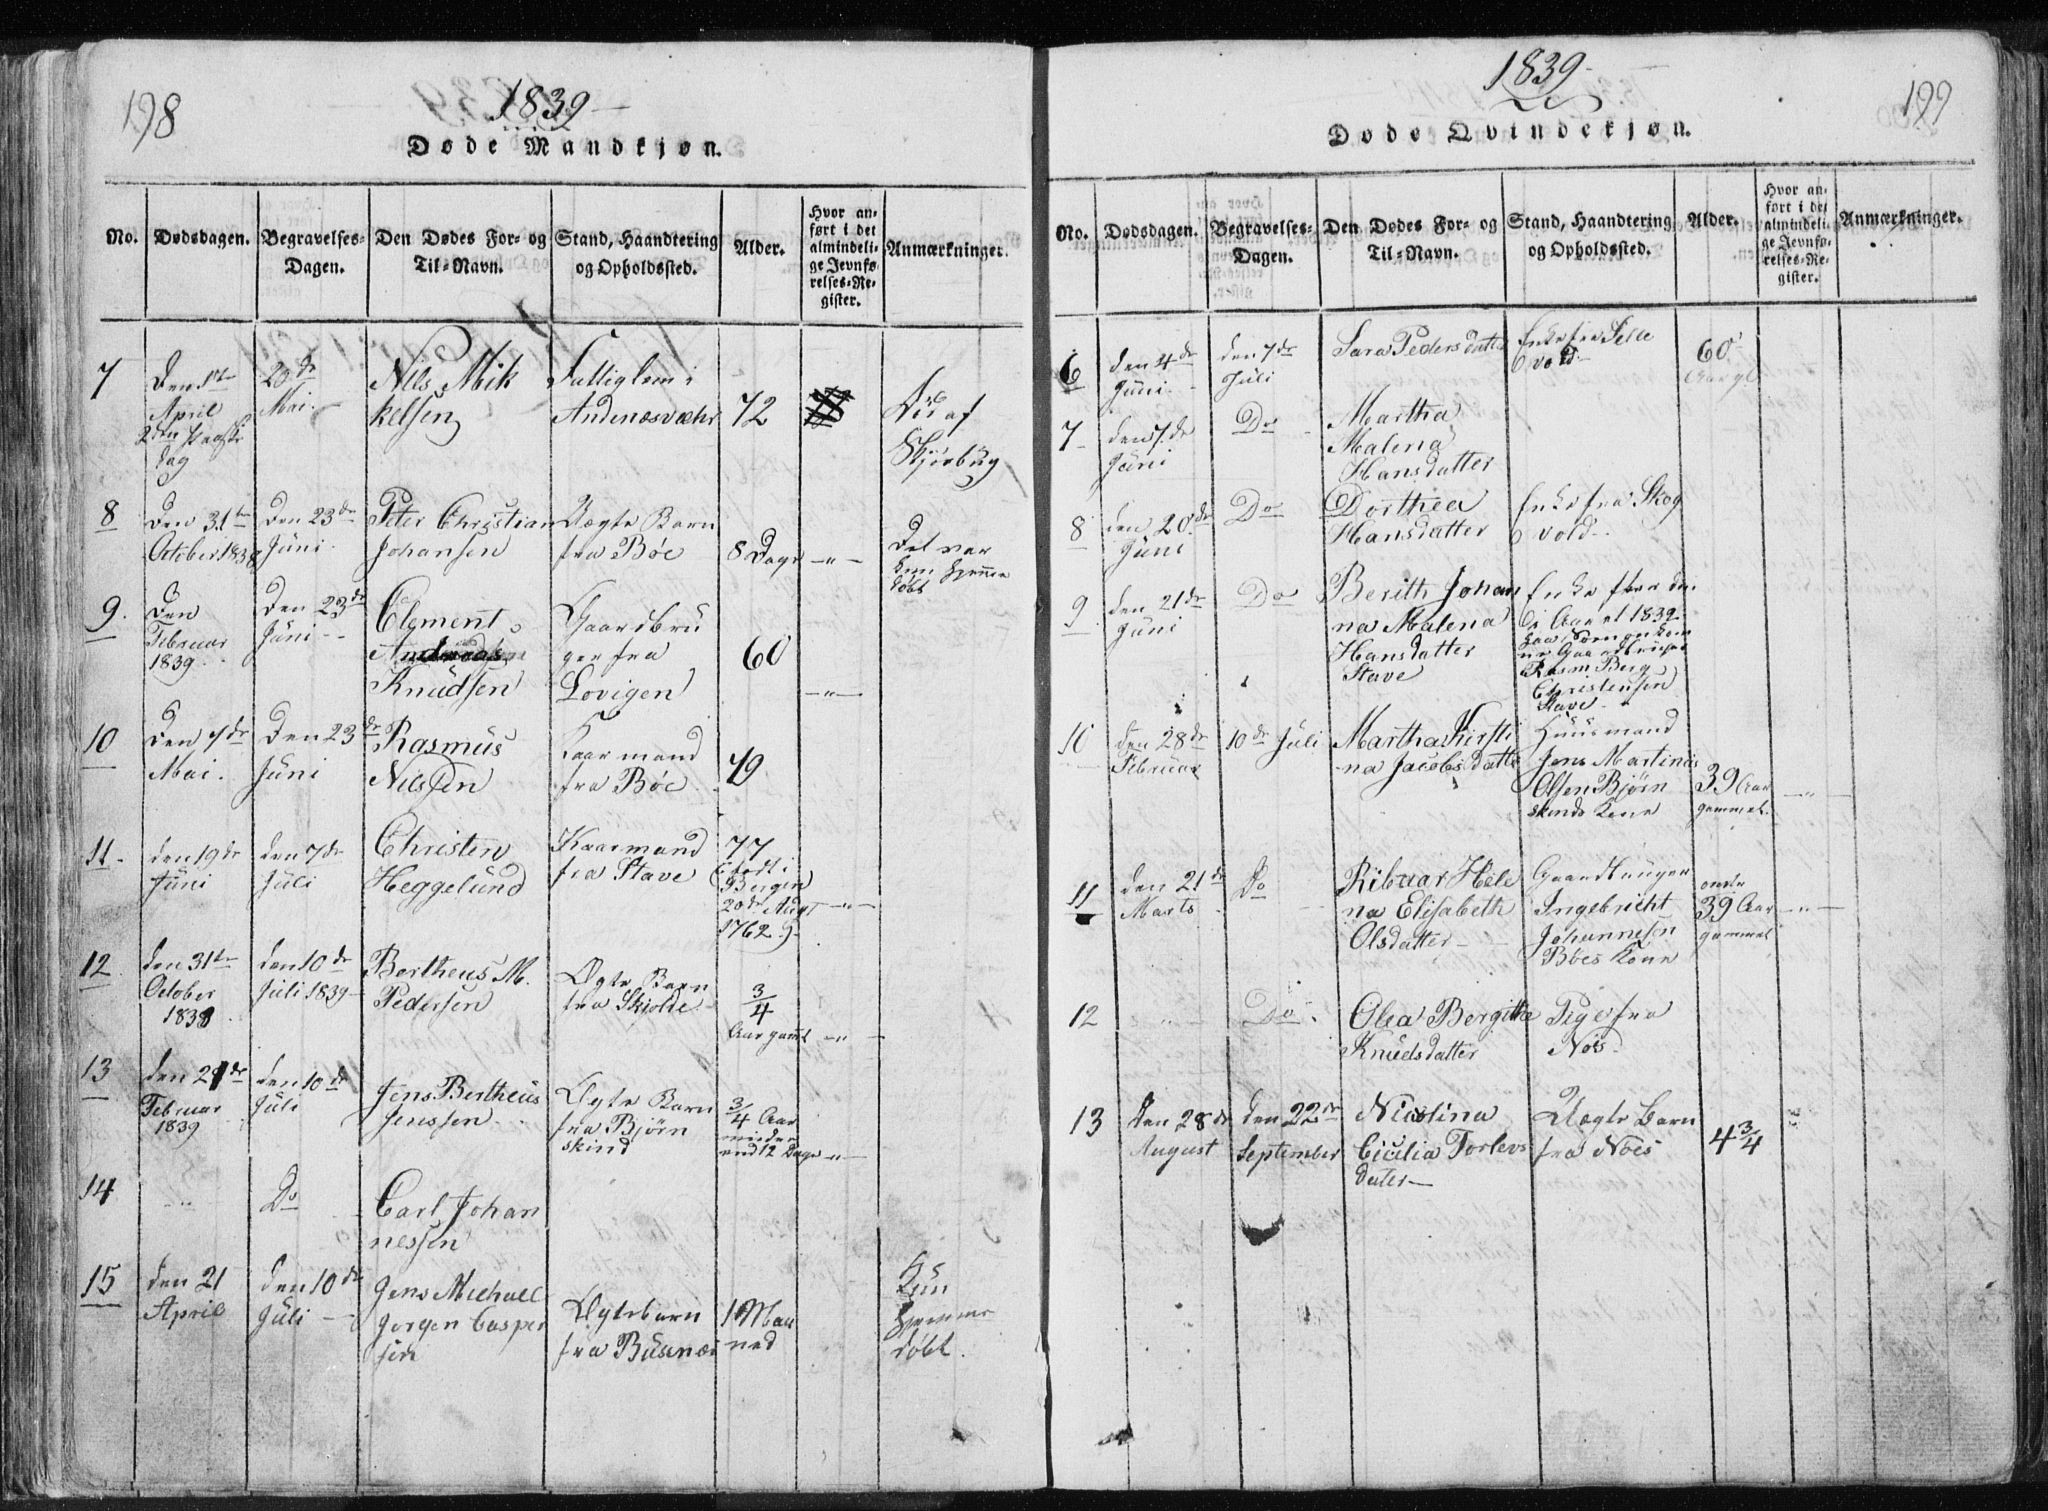 198
1839
Døde Mandkjøn.
No. Dødsdagen. Begravelses-Dagen. Den Dødes For- og Til-Navn. Stand, Haandtering og Opholdssted. Alder. Hvor anført i det almindelige Jevnførelses-Register. Anmærkninger.
7
Den 1te
April
dag
20de
Mai
Nils Mik
kelsen
Fattiglem i
Andenæsvæhr
72
Død af
Skjørbüg
8
Den 31te
October 1838
Den 23de
Jüni
Peter Christian
Johansen
Uægte Barn
fra Böe
8 Dage
Det var
kun hjemme
döbt
9
Den
Februar
1839
Den 23de
Jüni
Clement
Knüdsen
Gaardbrü
ger fra
Lovigen
60
10
Den 7de
Mai.
Den 23de
Jüni
Rasmüs
Nilssen
Kaarmand
fra Böe
49
11.
den 19de
Jüni
den 7de
Jüli
Christen
Heggelünd
Kaarmand
fra Stave
77
(fodt i
Bergen
20de Augt
1762)
12
den 31te
October
1838
den 10de
Jüli 1839
Bertheus M.
Pedersen
Ægte Barn
fra Skjolde
3/4
Aar gamt
13
den 21de
Februar
1839
den 10de
Jüli
Jens Bertheüs
Jenssen
Ægte Barn
fra Björn
skind
3/4 Aar
minder
end 12 Dage
14
Do
Carl Johan
nessen
15
den 21
April
den 10de
Jüli
Jens Michael
Jørgen Casper
sen
Ægtebarn
fra Büsnæs
1 Maa
ned
Kun
hjemme
döbt.
1839
199
Døde Qvindekjøn.
No. Dødsdagen. Begravelses-Dagen. Den Dødes For- og Til-Navn. Stand, Haandtering og Opholdssted. Alder. Hvor anført i det almindelige Jevnførelses-Register. Anmærkninger.
6
den 4de
Jüni
den 7de
Jüli
Sara Pedersdatter
Enke fra
vold
60
7
den 7de
Jüni
Do
Martha
Malena
Hansdatter
8
den 20de
Jüni
Do
Dorthea
Hansdatter
Enke fra Skog
vold
9
den 21de
Jüni
Do
Berith Johan
na Malena
Hansdatter
Stave
Enke efter den
i Aaret 1839
Rasm Berg
Christensen
Stave
10
den 28de
Februar
10de Jüli
Martha Kirsti
na Jacobsdatter
Hüüsmand
Jens Martinüs
Olsen Björn
skinds Kone
39 Aar
gammel.
11
den 21de
Marts
Do
Ribuar Hele
na Elisabeth
Olsdatter
Gaardbruger
Ingebricht
Johannesen
Böes Kone
39 Aar
gammel
12
Do
Olea Bergitha
Knüdsdatter
Pige fra
Nöis
13
Den 28de
August
den 22de
September
Nicolina
Cicilia Torlevs
dater
Uægte Barn
fra Nöis
4 3/4